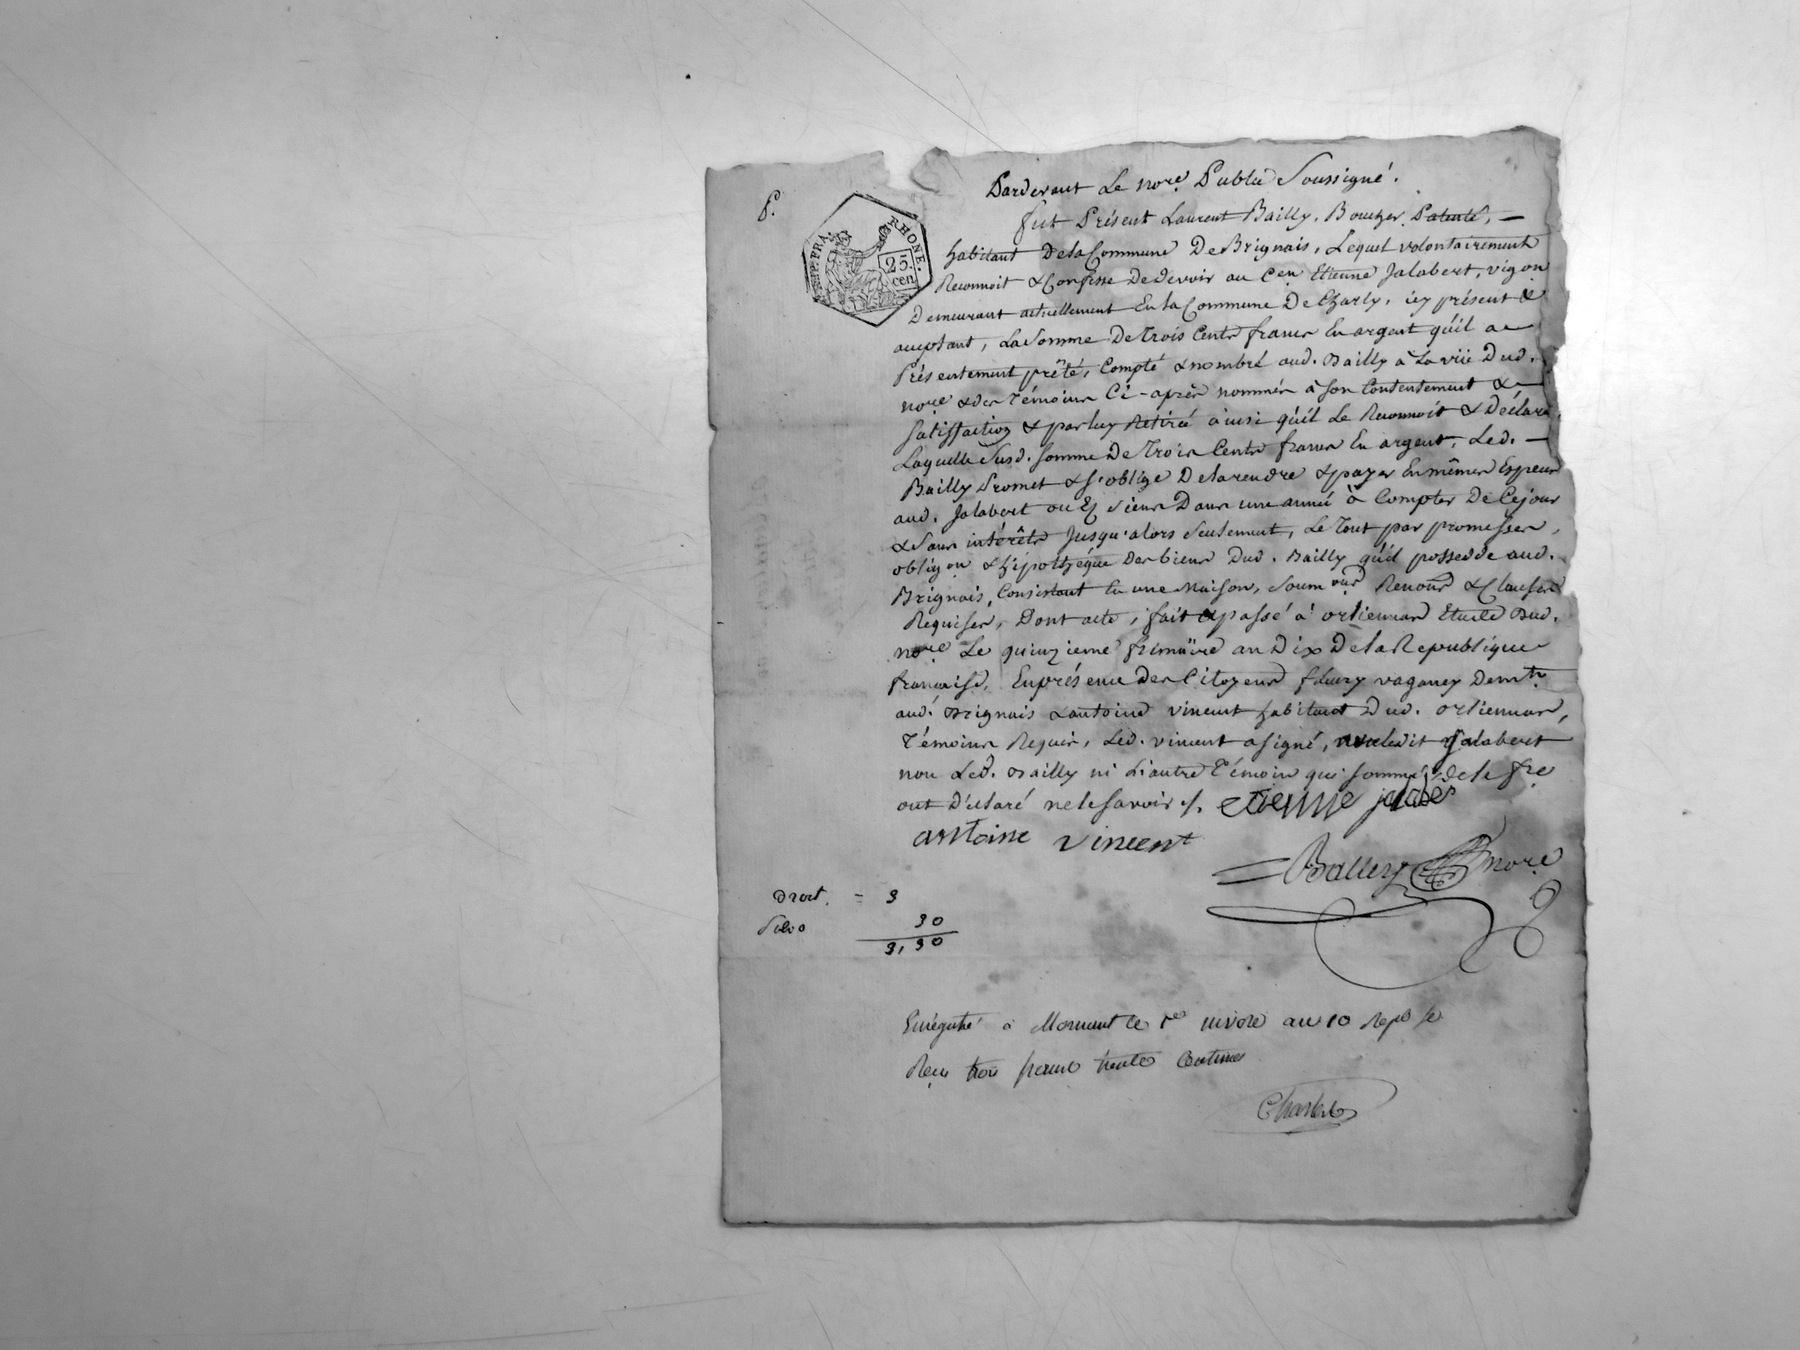 P.
REP. FRA. RHONE.
25.
cen
Pardevant Le nore. Public Soussigné.
fut Présent Laurent Bailly, Boucher Patenté, —
habitant De la Commune De Brignais, Lequel volontairement
Reconnoit & Confesse De devoir au Cen. Etienne Jalabert, vigon
Demeurant actuellement En la Commune De Charly, icy présent &
acceptant, La Somme De Trois Cents francs En argent qu'il a
Présentement prêté, Compté & nombré aud. Bailly à La vüe Dud.
nore. & des Témoins Ci-après nommés à son Contentement &
Satisfaction & par luy Retirée ainsi qu'il Le Reconnoit & Déclare,
Laquelle Susd. somme De Trois Cents francs En argent, Led. —
Bailly Promet & s'oblige De la rendre & payer En mêmes Especes
aud. Jalabert ou Ez siens Dans une année à Compter De Cejour
& Sans intérêts Jusqu'alors Seulement, Le Tout par promesses,
obligon. & hipothéque Des biens Dud. Bailly qu'il possedde aud.
Brignais, Consistant En une Maison, Soumons Renons & Clauses
Requises, Dont acte, fait & passé à orliennas Etude Dud.
nore. Le quinzieme frimaire an Dix De la Republique
française, En présence Des Citoyens fleury vaganey Demt.
aud. Brignais & antoine vincent habitant Dud. orliennas,
Témoins Requis, Led. vincent a signé, avec ledit Jalabert
non Led. Bailly ni L'autre Témoin qui sommés de le fre
ont Déclaré ne le savoir ./. etienne
antoine vincent
Balley nore.
Droit. = 3
30
3,30
Enregistré à Mornant le 1er nivose an 10 Repb se
Reçu trois francs trente centimes